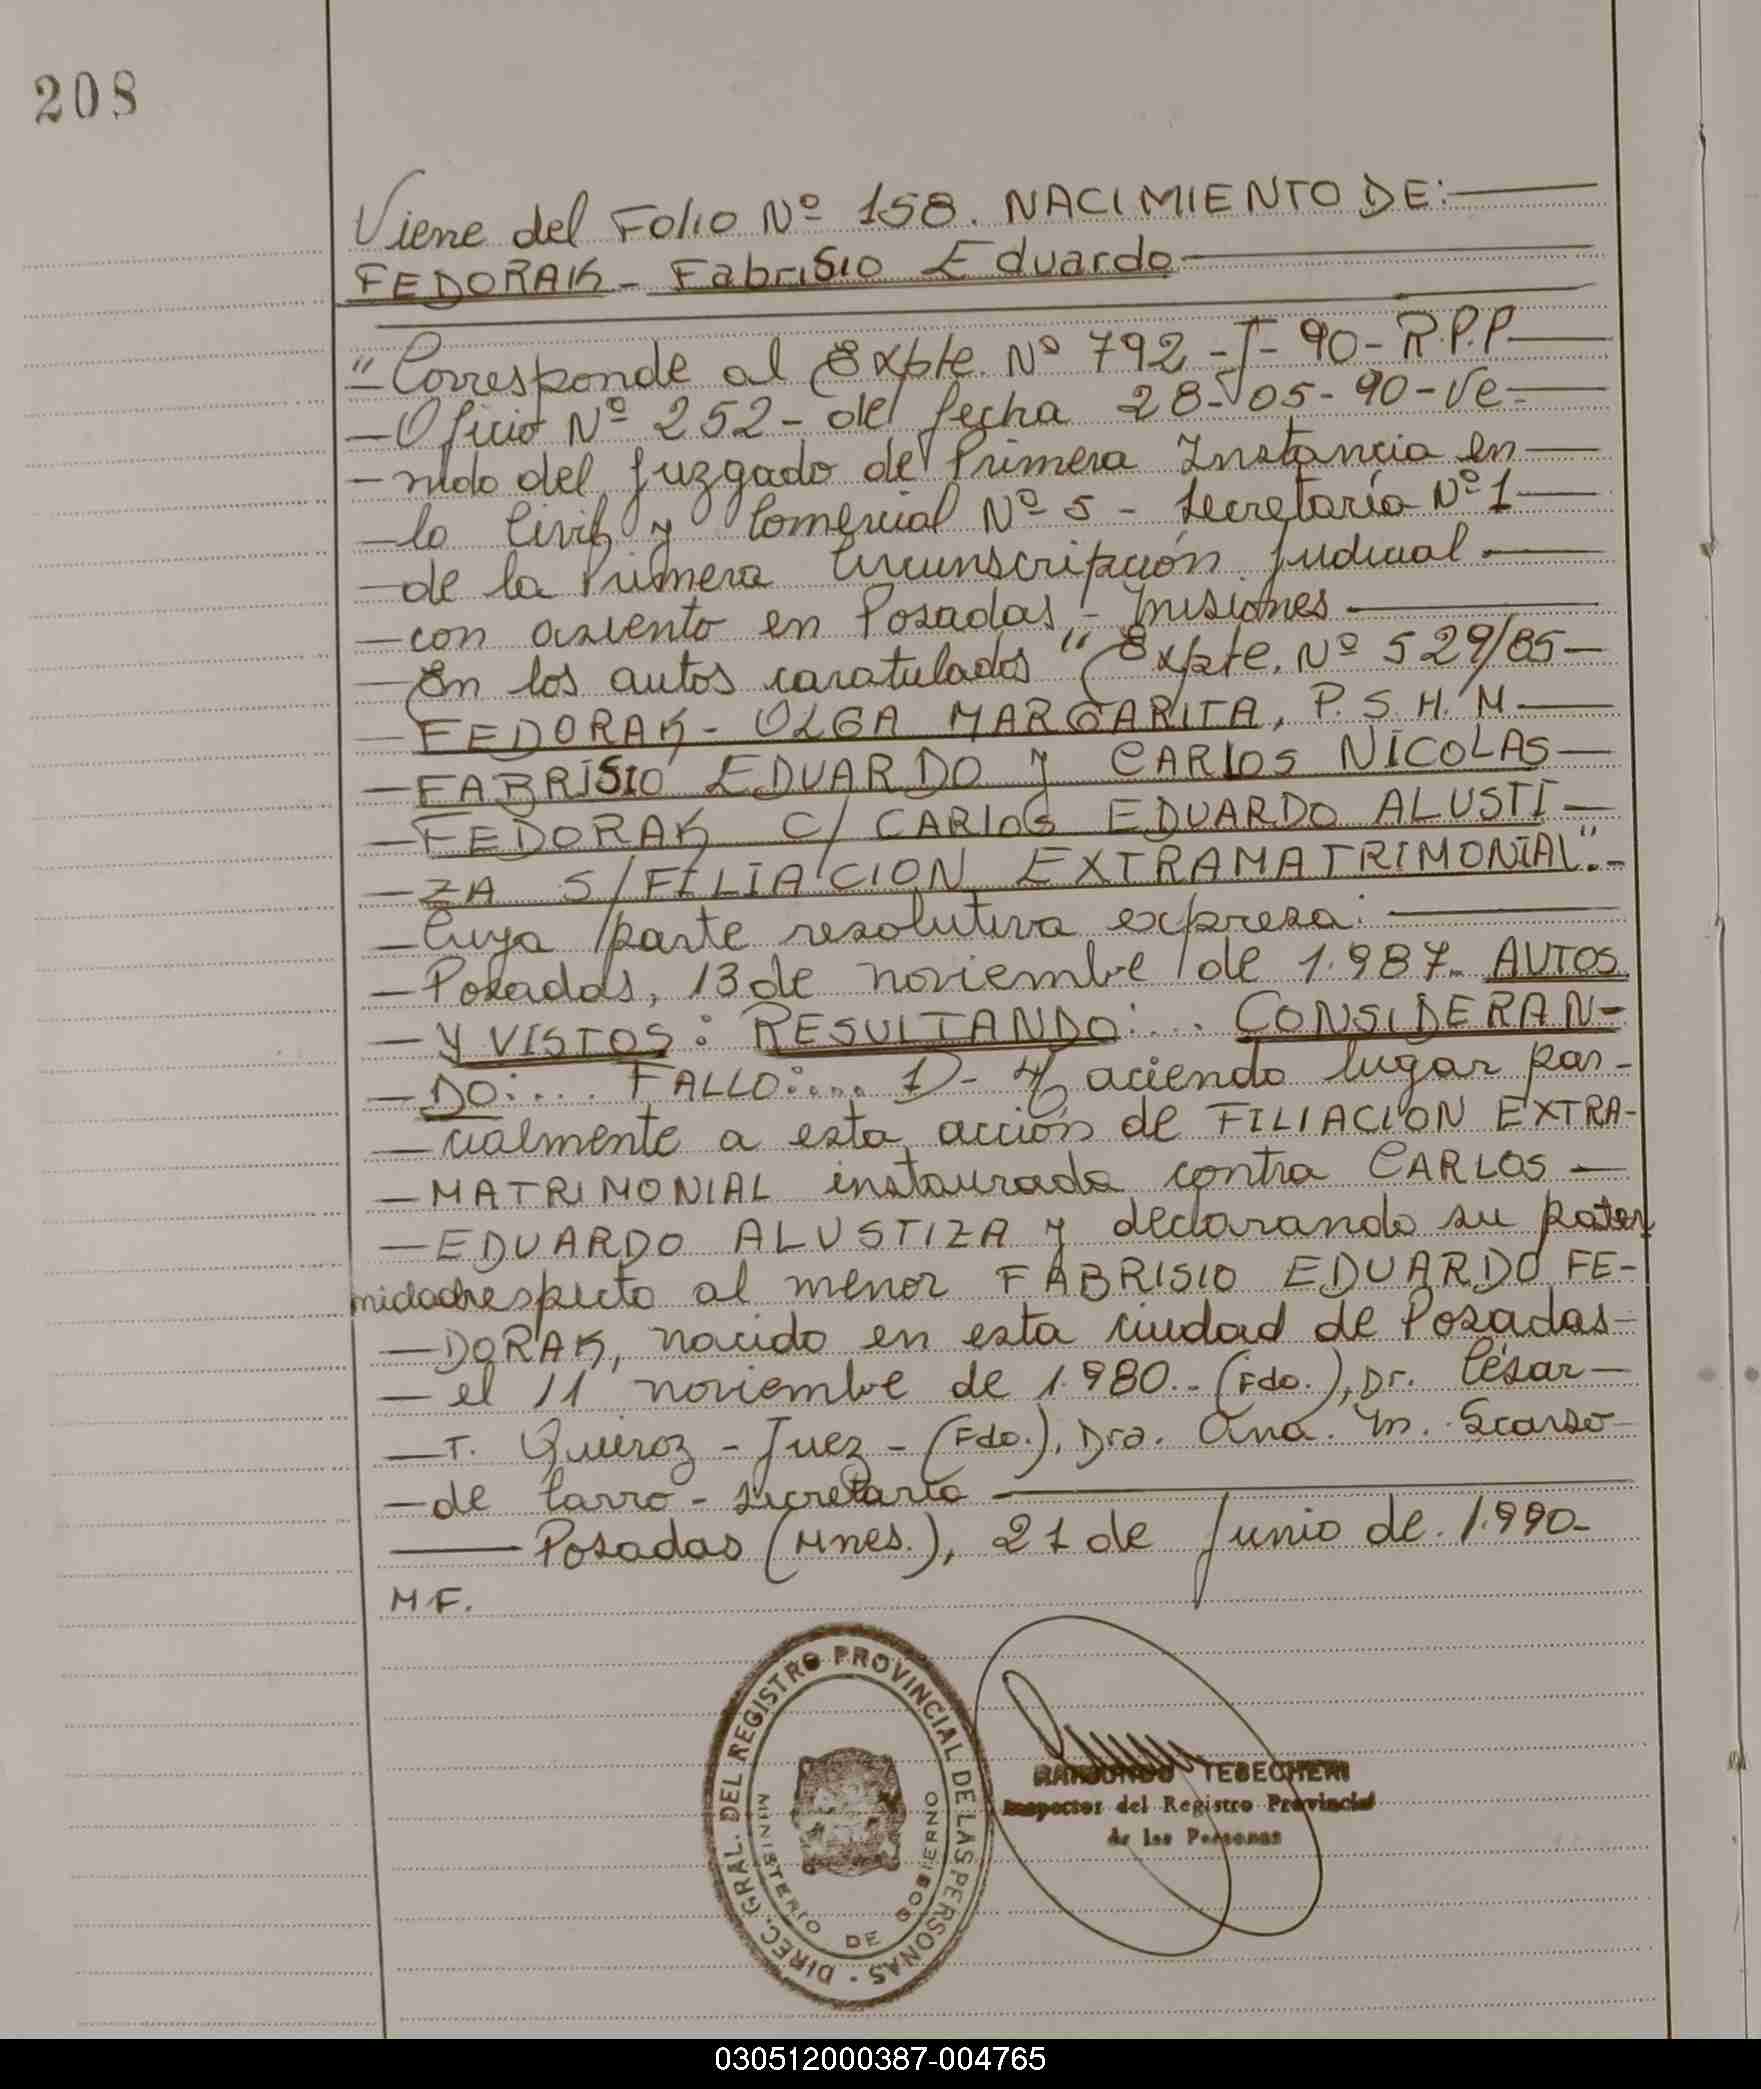 208
Viene del Folio Nº 158. NACIMIENTO DE:
FEDORAK - Fabrisio Eduardo
"Corresponde al Expte. Nº 792 - J - 90 - R.P.P.
Oficio Nº 252 - de fecha 28-05-90 - ve-
nido del Juzgado de Primera Instancia en
lo Civil y Comercial Nº 5 - Secretaría Nº 1
de la Primera Circunscripción Judicial
con asiento en Posadas - Misiones
En los autos caratulados "Expte. Nº 529/85
FEDORAK - OLGA MARGARITA, P.S.H.M
FABRISIO EDUARDO y CARLOS NICOLAS
FEDORAK C/ CARLOS EDUARDO ALUSTI
ZA S/FILIACION EXTRAMATRIMONIAL".-
Cuya parte resolutiva expresa:
Posadas, 13 de noviembre de 1.987. AUTOS
Y VISTOS: RESULTANDO:... CONSIDERAN-
DO:.... FALLO:.... 1) - Haciendo lugar par-
cialmente a esta acción de FILIACION EXTRA-
MATRIMONIAL instaurada contra CARLOS
EDUARDO ALUSTIZA y declarando su pater
nidad respecto al menor FABRISIO EDUARDO FE-
DORAK, nacido en esta ciudad de Posadas
el 11 noviembre de 1.980.- (Fdo.), Dr. César
T. Queiroz - Juez - (Fdo.), Dra. Ana. M. Scarso
de Carro - Secretaria
Posadas (Mnes.), 21 de Junio de 1.990-
M F.
DIREC. GRAL. DEL REGISTRO PROVINCIAL DE LAS PERSONAS
MINISTERIO DE GOBIERNO
RAIMUNDO TEBECHERI
Inspector del Registro Provincial
de las Personas
030512000387-004765